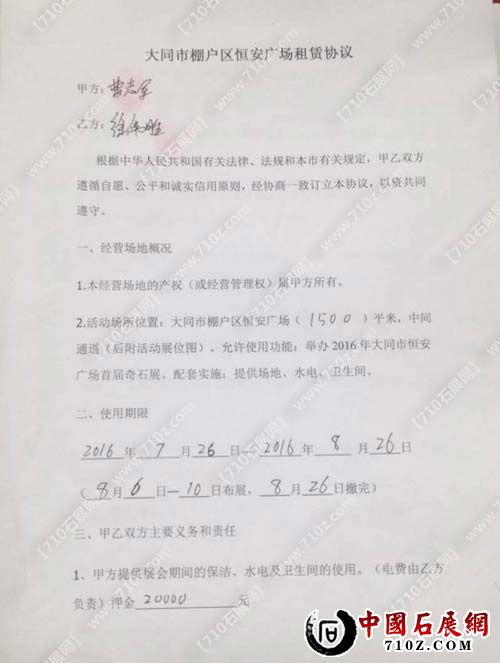 大同市棚户区恒安广场租赁协议
甲方：曹志军
乙方：徐伟胜
根据中华人民共和国有关法律、法规和本市有关规定，甲乙双方
遵循自愿、公平和诚实信用原则，经协商一致订立本协议，以资共同
遵守。
一、经营场地概况
1.本经营场地的产权（或经营管理权）属甲方所有。
2.活动场所位置：大同市棚户区恒安广场（1500）平米，中间
通道（后附活动展位图）。允许使用功能：举办 2016 年大同市恒安
广场首届奇石展。配套实施：提供场地、水电、卫生间。
二、使用期限
2016 年 7 月 26 日—2016 年 8 月 26 日
（8 月 6 日—10 日布展，8 月 26 日撤完）
三、甲乙双方主要义务和责任
1、甲方提供展会期间的保洁、水电及卫生间的使用。（电费由乙方
负责）押金 20000 元
中國石展網
710Z.COM
【710石展网】 www.710z.com